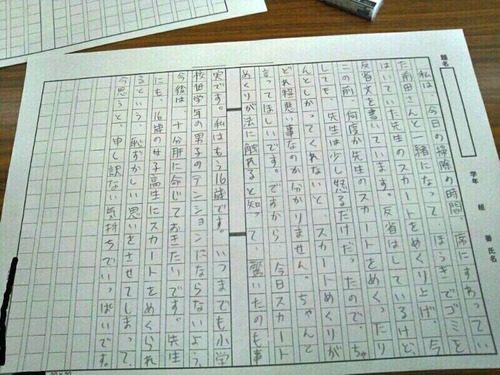 題名
学年 組 番 氏名
私は、今日の掃除の時間、席にすわってい
た前田さんと一緒になって、ほうきでゴミを
はいていた先生のスカートをめくり上げ、今
反省文を書いています。反省はしているけど、
この前、何度か先生のスカートをめくったり
しても、先生は少し怒るだけだったので、ちゃ
んとしかってくれないと、スカートめくりが
どれ程悪い事なのか分かりません。ちゃんと
言ってほしいです。ですから、今日スカート
めくりが法に触れると知って、驚いたのも事
実です。私はもう16歳です。いつまでも小学
校低学年の男子のテンションにならないよう、
今後は、十分肝に命じておきたいです。先生
にも、16歳の女子高生にスカートをめくられ
るという、恥ずかしい思いをさせてしまって、
今思うと、申し訳ない気持ちでいっぱいです。